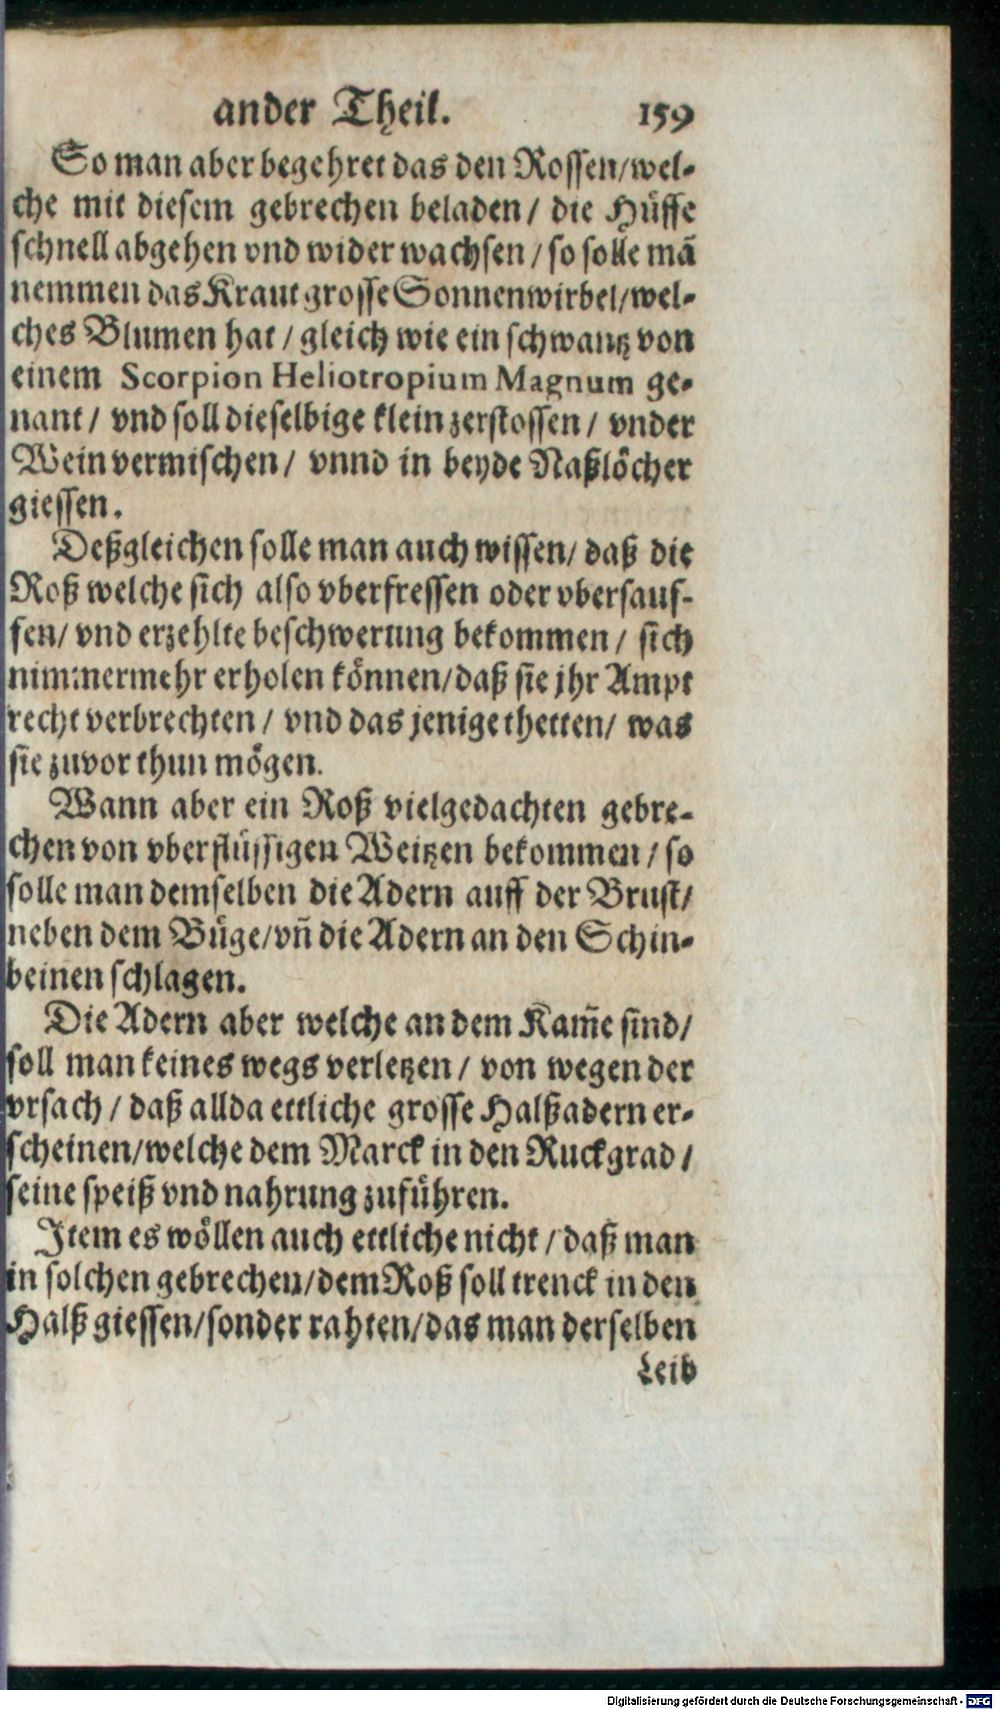 ander Theil. 159
So man aber begehret das den Rossen/wel-
che mit diesem gebrechen beladen/ die Hüffe
schnell abgehen vnd wider wachsen/so solle mā
nemmen das Kraut grosse Sonnenwirbel/wel-
ches Blumen hat/gleich wie ein schwantz von
einem Scorpion Heliotropium Magnum ge-
nant/ vnd soll dieselbige klein zerstossen/ vnder
Wein vermischen/ vnnd in beyde Naßlöcher
giessen.
Deßgleichen solle man auch wissen/daß die
Roß welche sich also vberfressen oder vbersauf-
fen/ vnd erzehlte beschwerung bekommen/ sich
nimmermehr erholen können/daß sie jhr Ampt
recht verbrechten/ vnd das jenige thetten/ was
sie zuvor thun mögen.
Wann aber ein Roß vielgedachten gebre-
chen von vberflüssigen Weitzen bekommen/so
solle man demselben die Adern auff der Brust/
neben dem Büge/vñ die Adern an den Schin-
beinen schlagen.
Die Adern aber welche an dem Kam̃e sind/
soll man keines wegs verletzen/ von wegen der
vrsach/daß allda ettliche grosse Halßadern er-
scheinen/welche dem Marck in den Ruckgrad/
seine speiß vnd nahrung zuführen.
Item es wöllen auch ettliche nicht/daß man
in solchen gebrechen/dem Roß soll trenck in den
Halß giessen/sonder rahten/das man derselben
Leib
Digitalisierung gefördert durch die Deutsche Forschungsgemeinschaft - DFG